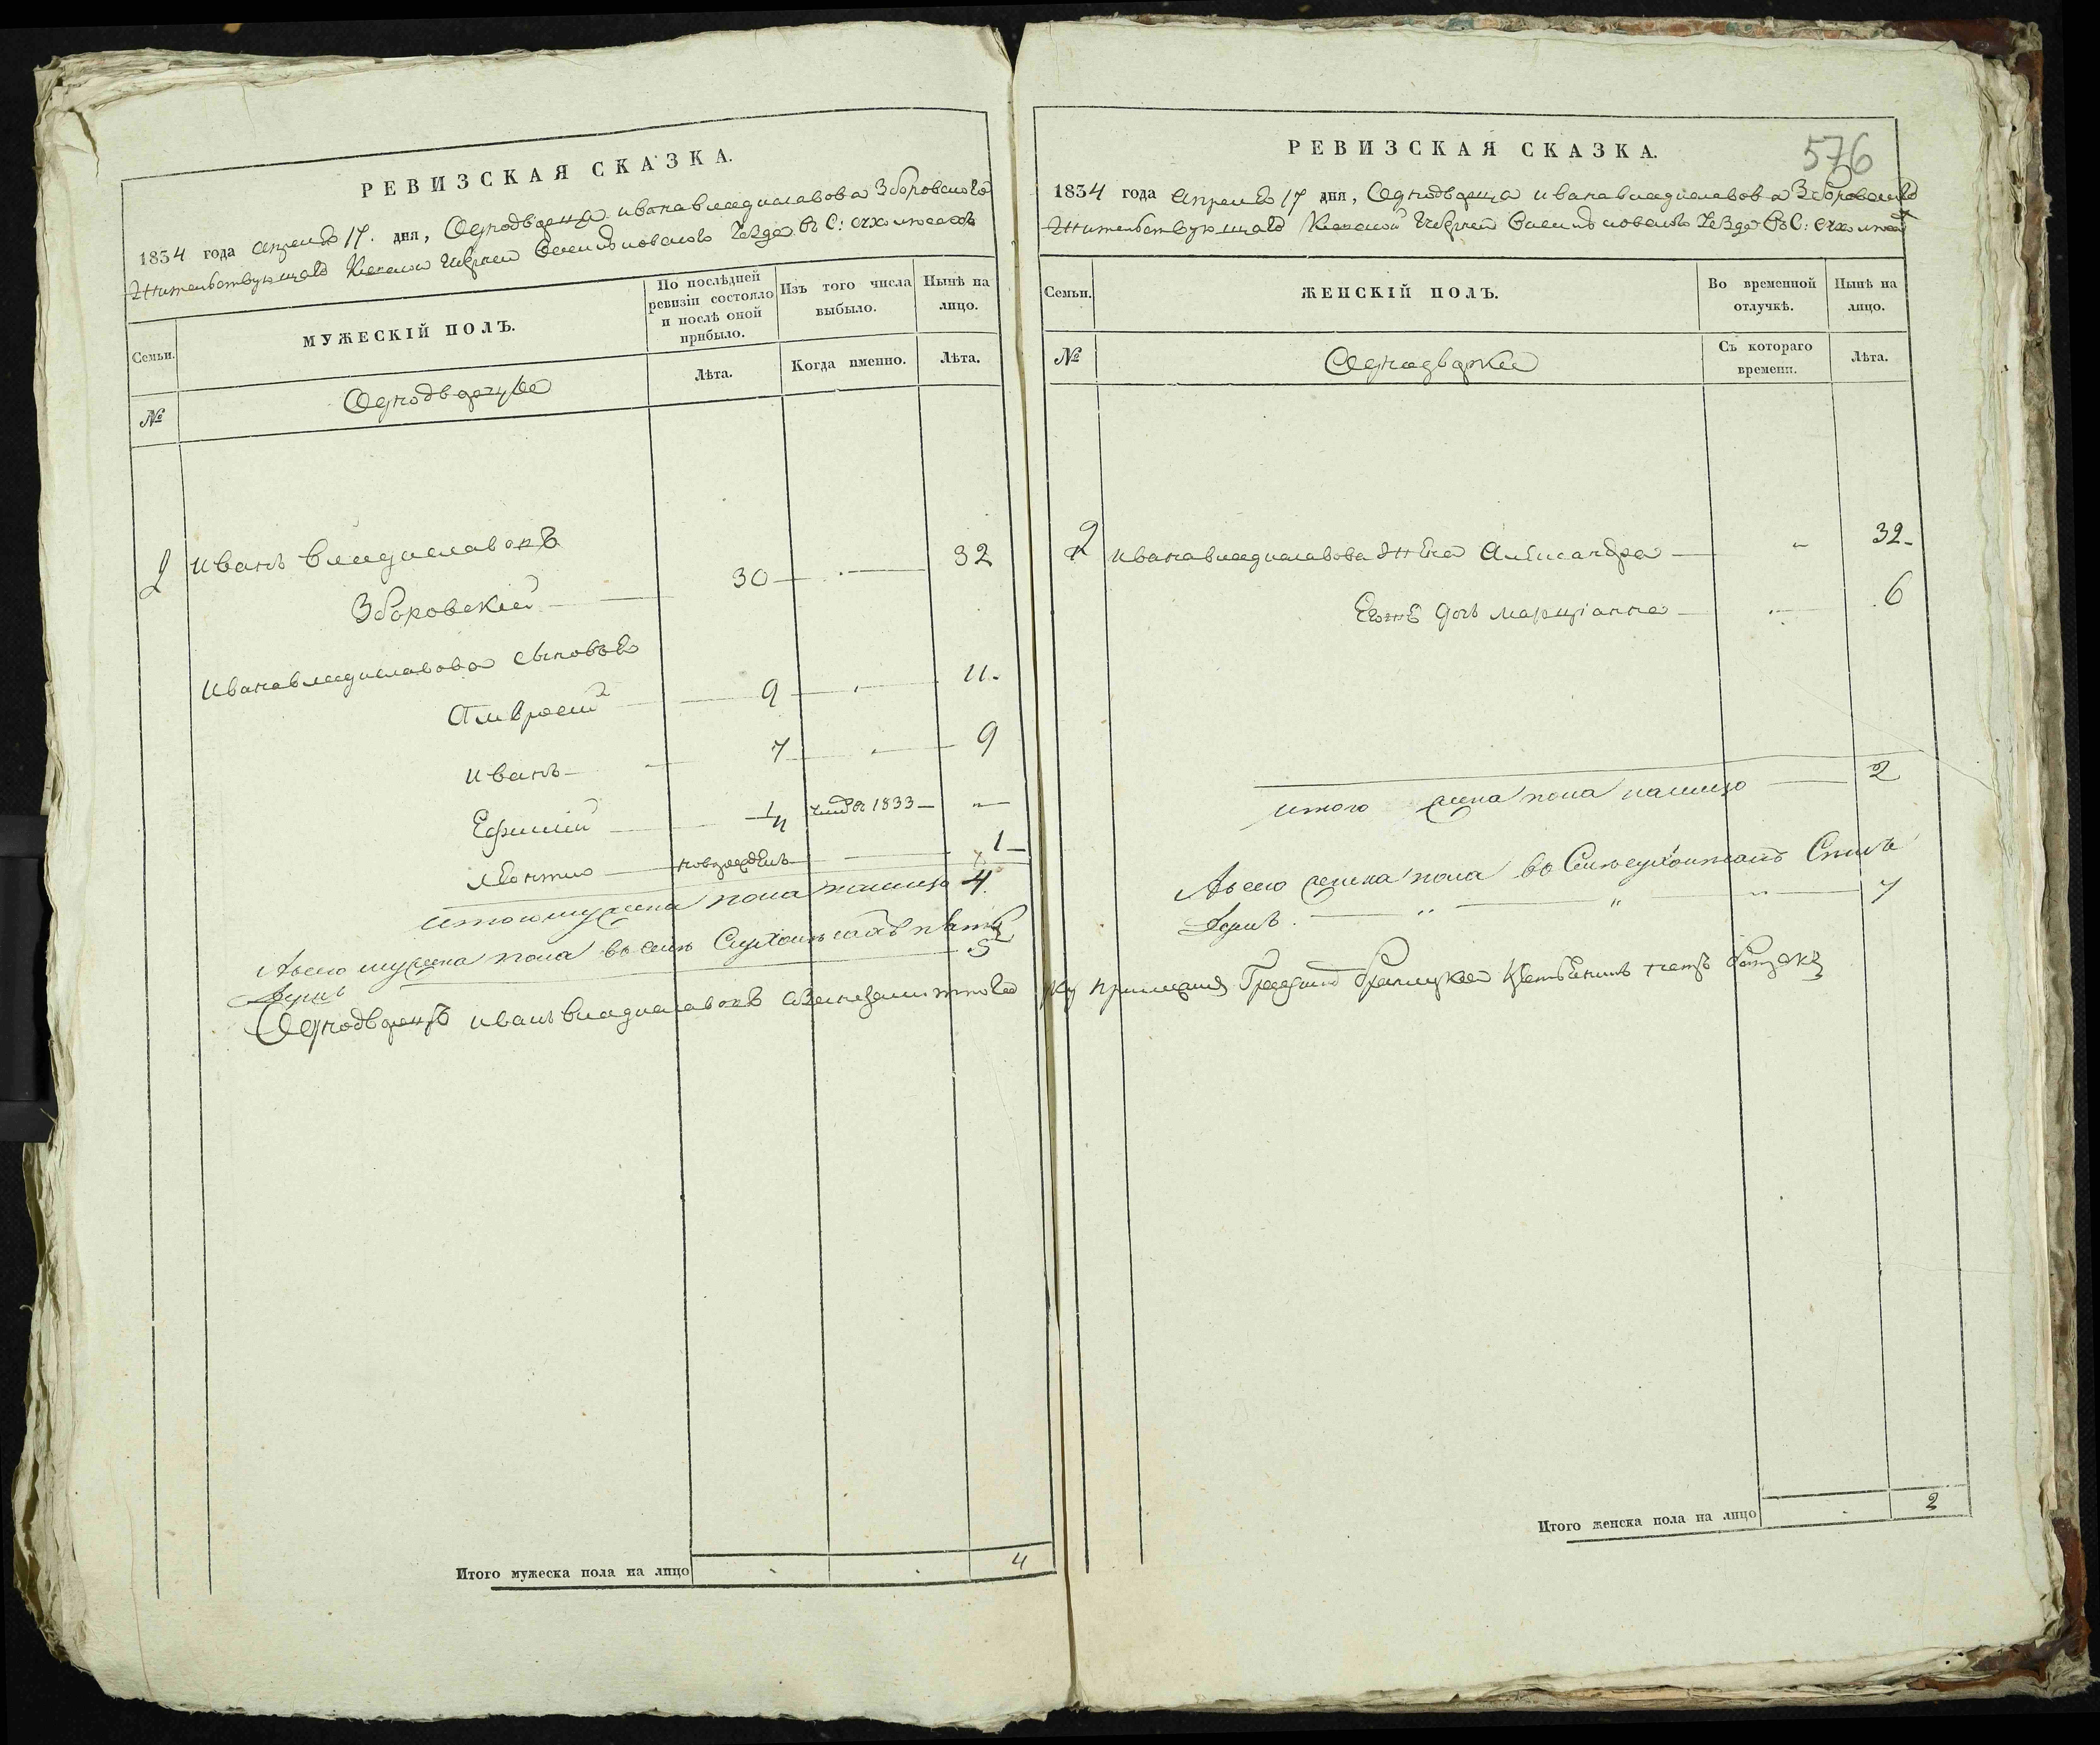 РЕВИЗСКАЯ СКАЗКА.
1834 года апреля 17. дня, Однодворца ивана владиславова Зборовского
Жительствующаго Киевской Губернии Васильковского уезда в С:
Семьи.
МУЖЕСКІЙ ПОЛЪ.
По послѣдней ревизіи состояло и послѣ оной прибыло.
Изъ того числа выбыло.
Нынѣ на лицо.
№
Однодворцы
Лѣта.
Когда именно.
Лѣта.
2 иванъ владиславовъ
Зборовскій 30 32
ивана владиславова сыновья
Амвросій 9 11.
иванъ 7 9
Ефимій 1833
Леонтий новорожденъ 1
итого мужеска пола налицо 4.
Авсего мужеска пола в селе пять
Душъ 5
Однодворецъ иванъ владиславовъ
Итого мужеска пола на лицо 4
РЕВИЗСКАЯ СКАЗКА.
576
1834 года апреля 17 дня, Однодворца ивана владиславова Зборовского
Жительствующаго Киевской Губернии Васильковского уезда в С:
Семьи.
ЖЕНСКІЙ ПОЛЪ.
Во временной отлучкѣ.
Нынѣ на лицо.
№
Однодворки
Съ котораго времени.
Лѣта.
2 ивана владиславова жена Александра 32
Егож дочь марціанна 6
итого женска пола налицо 2
Авсего женска пола в Селе семь
Душъ 7
Итого женска пола на лицо 2